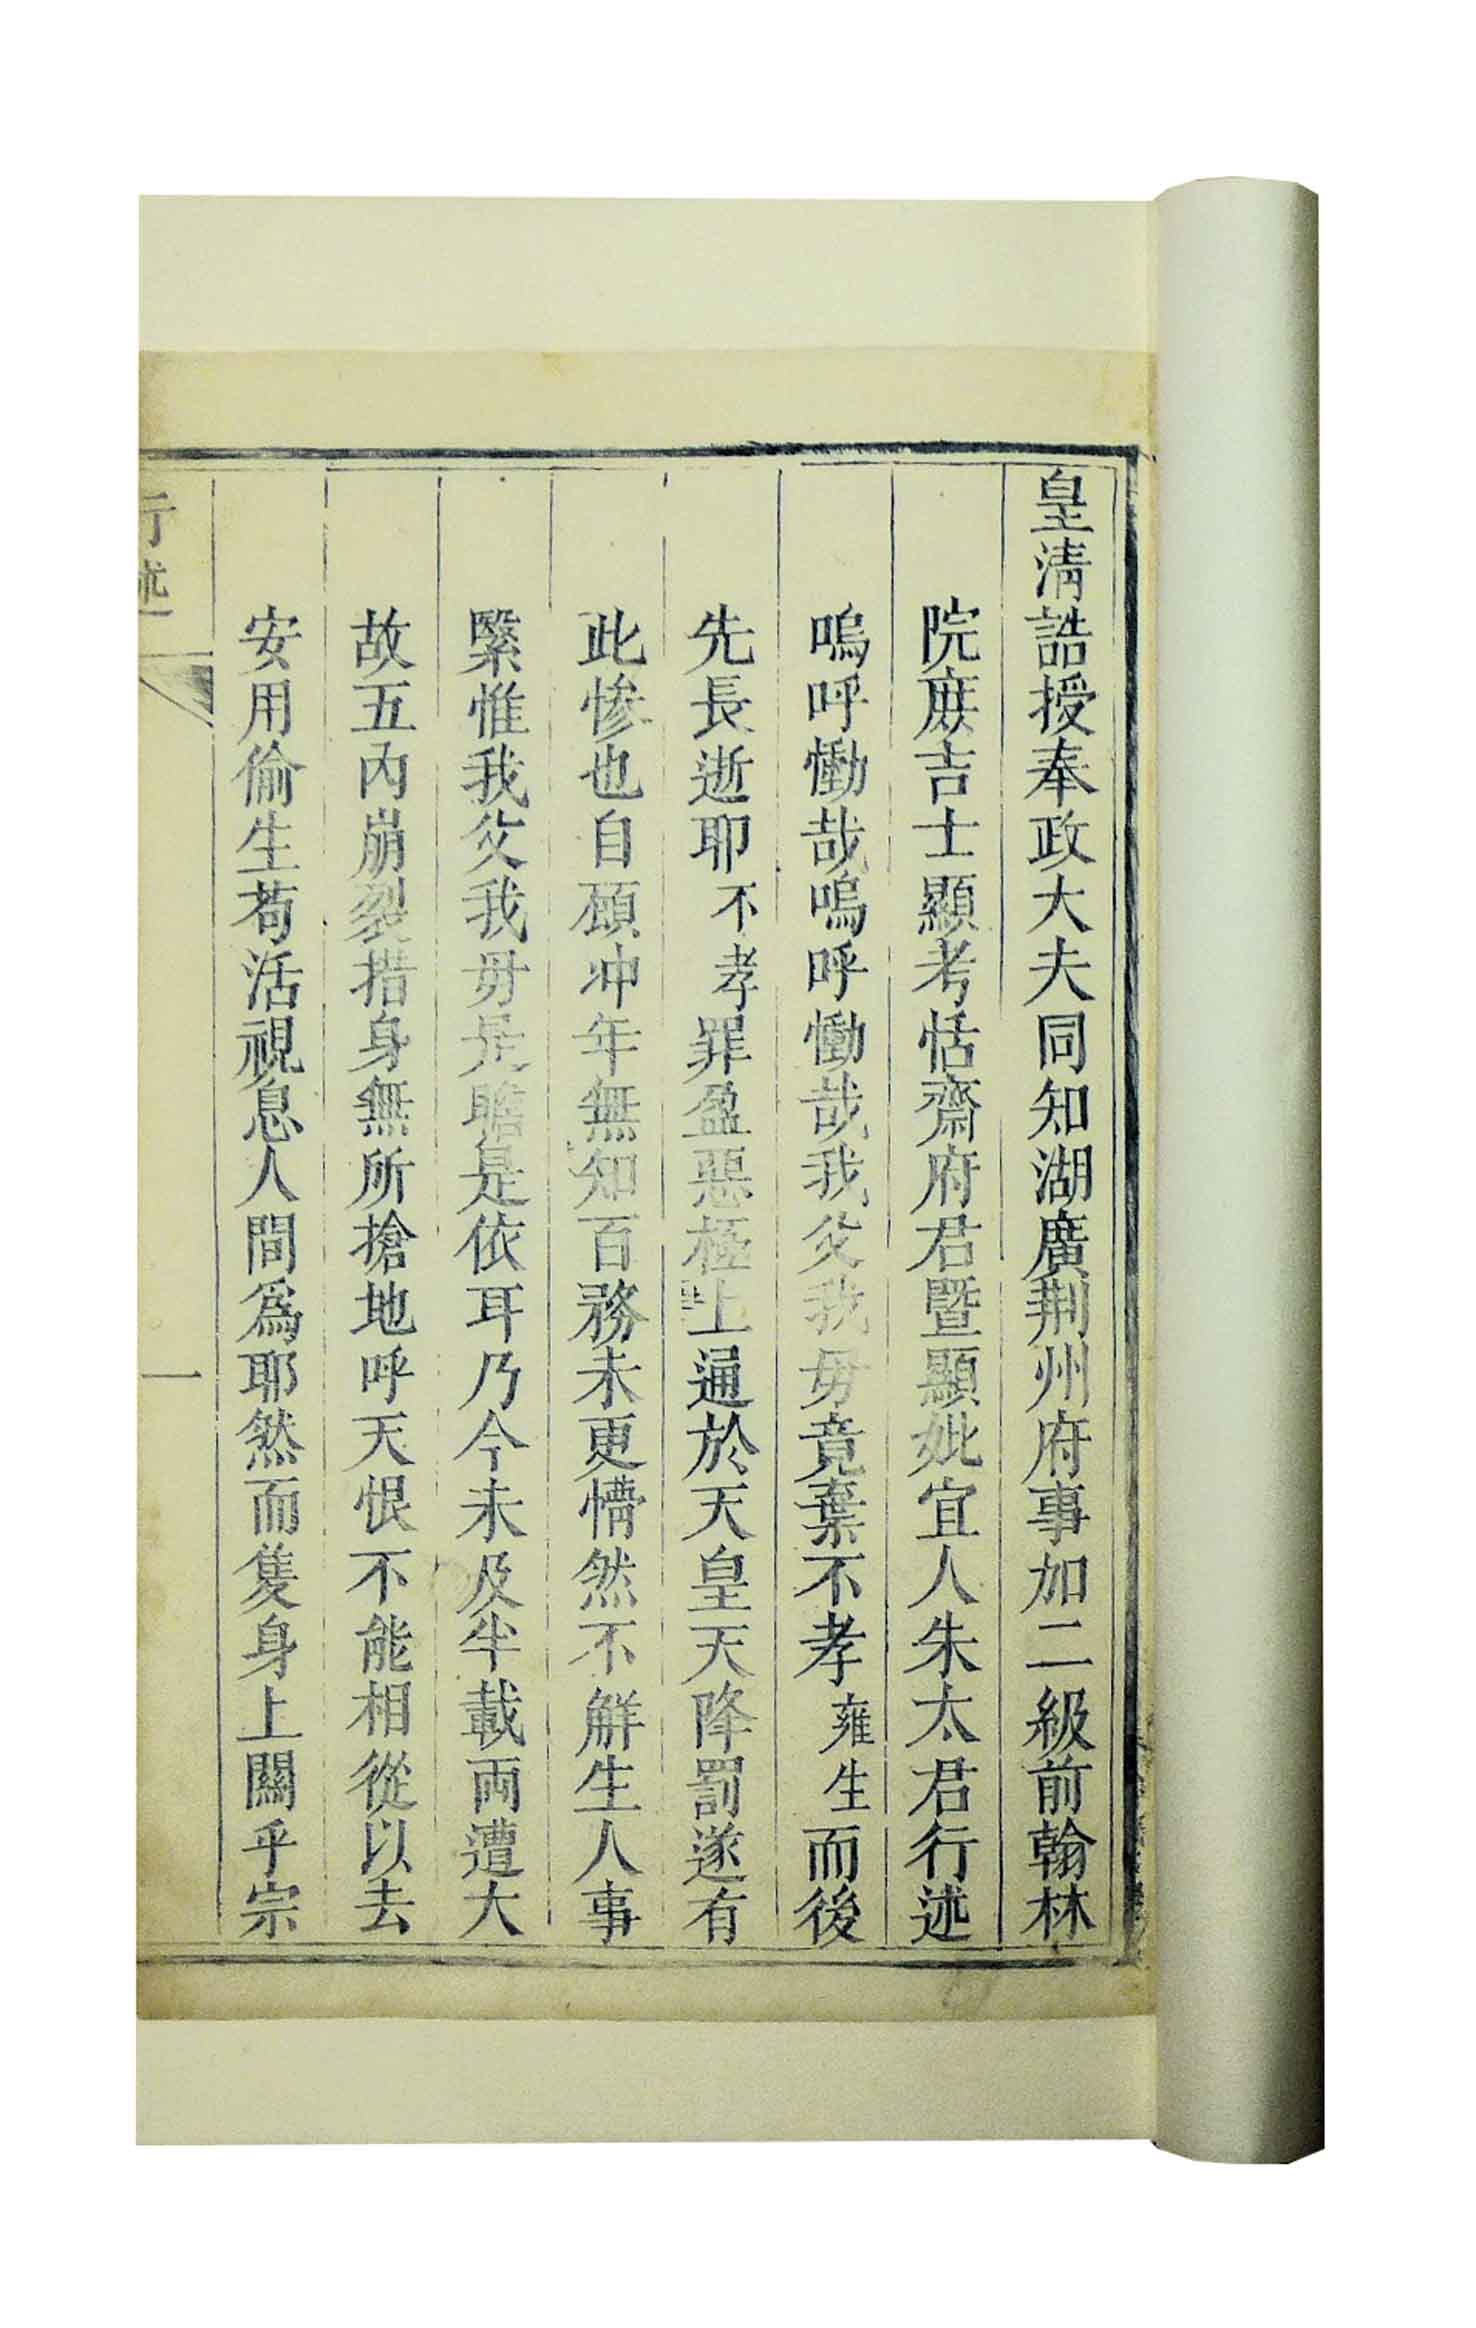 皇淸誥授奉政大夫同知湖廣荆州府事加二級前翰林
院庶吉士顯考恬齋府君暨顯妣宜人朱太君行述
嗚呼慟哉嗚呼慟哉我父我毋竟棄不孝雍生而後
先長逝耶不孝罪盈惡極上通於天皇天降罰遂有
此慘也自顧冲年無知百務未更懵然不解生人事
緊惟我父我毋是瞻是依耳乃今未及半載兩遭大
故五內崩裂措身無所搶地呼天恨不能相從以去
安用偷生苟活視息人間爲耶然而隻身上關乎宗
行述
一